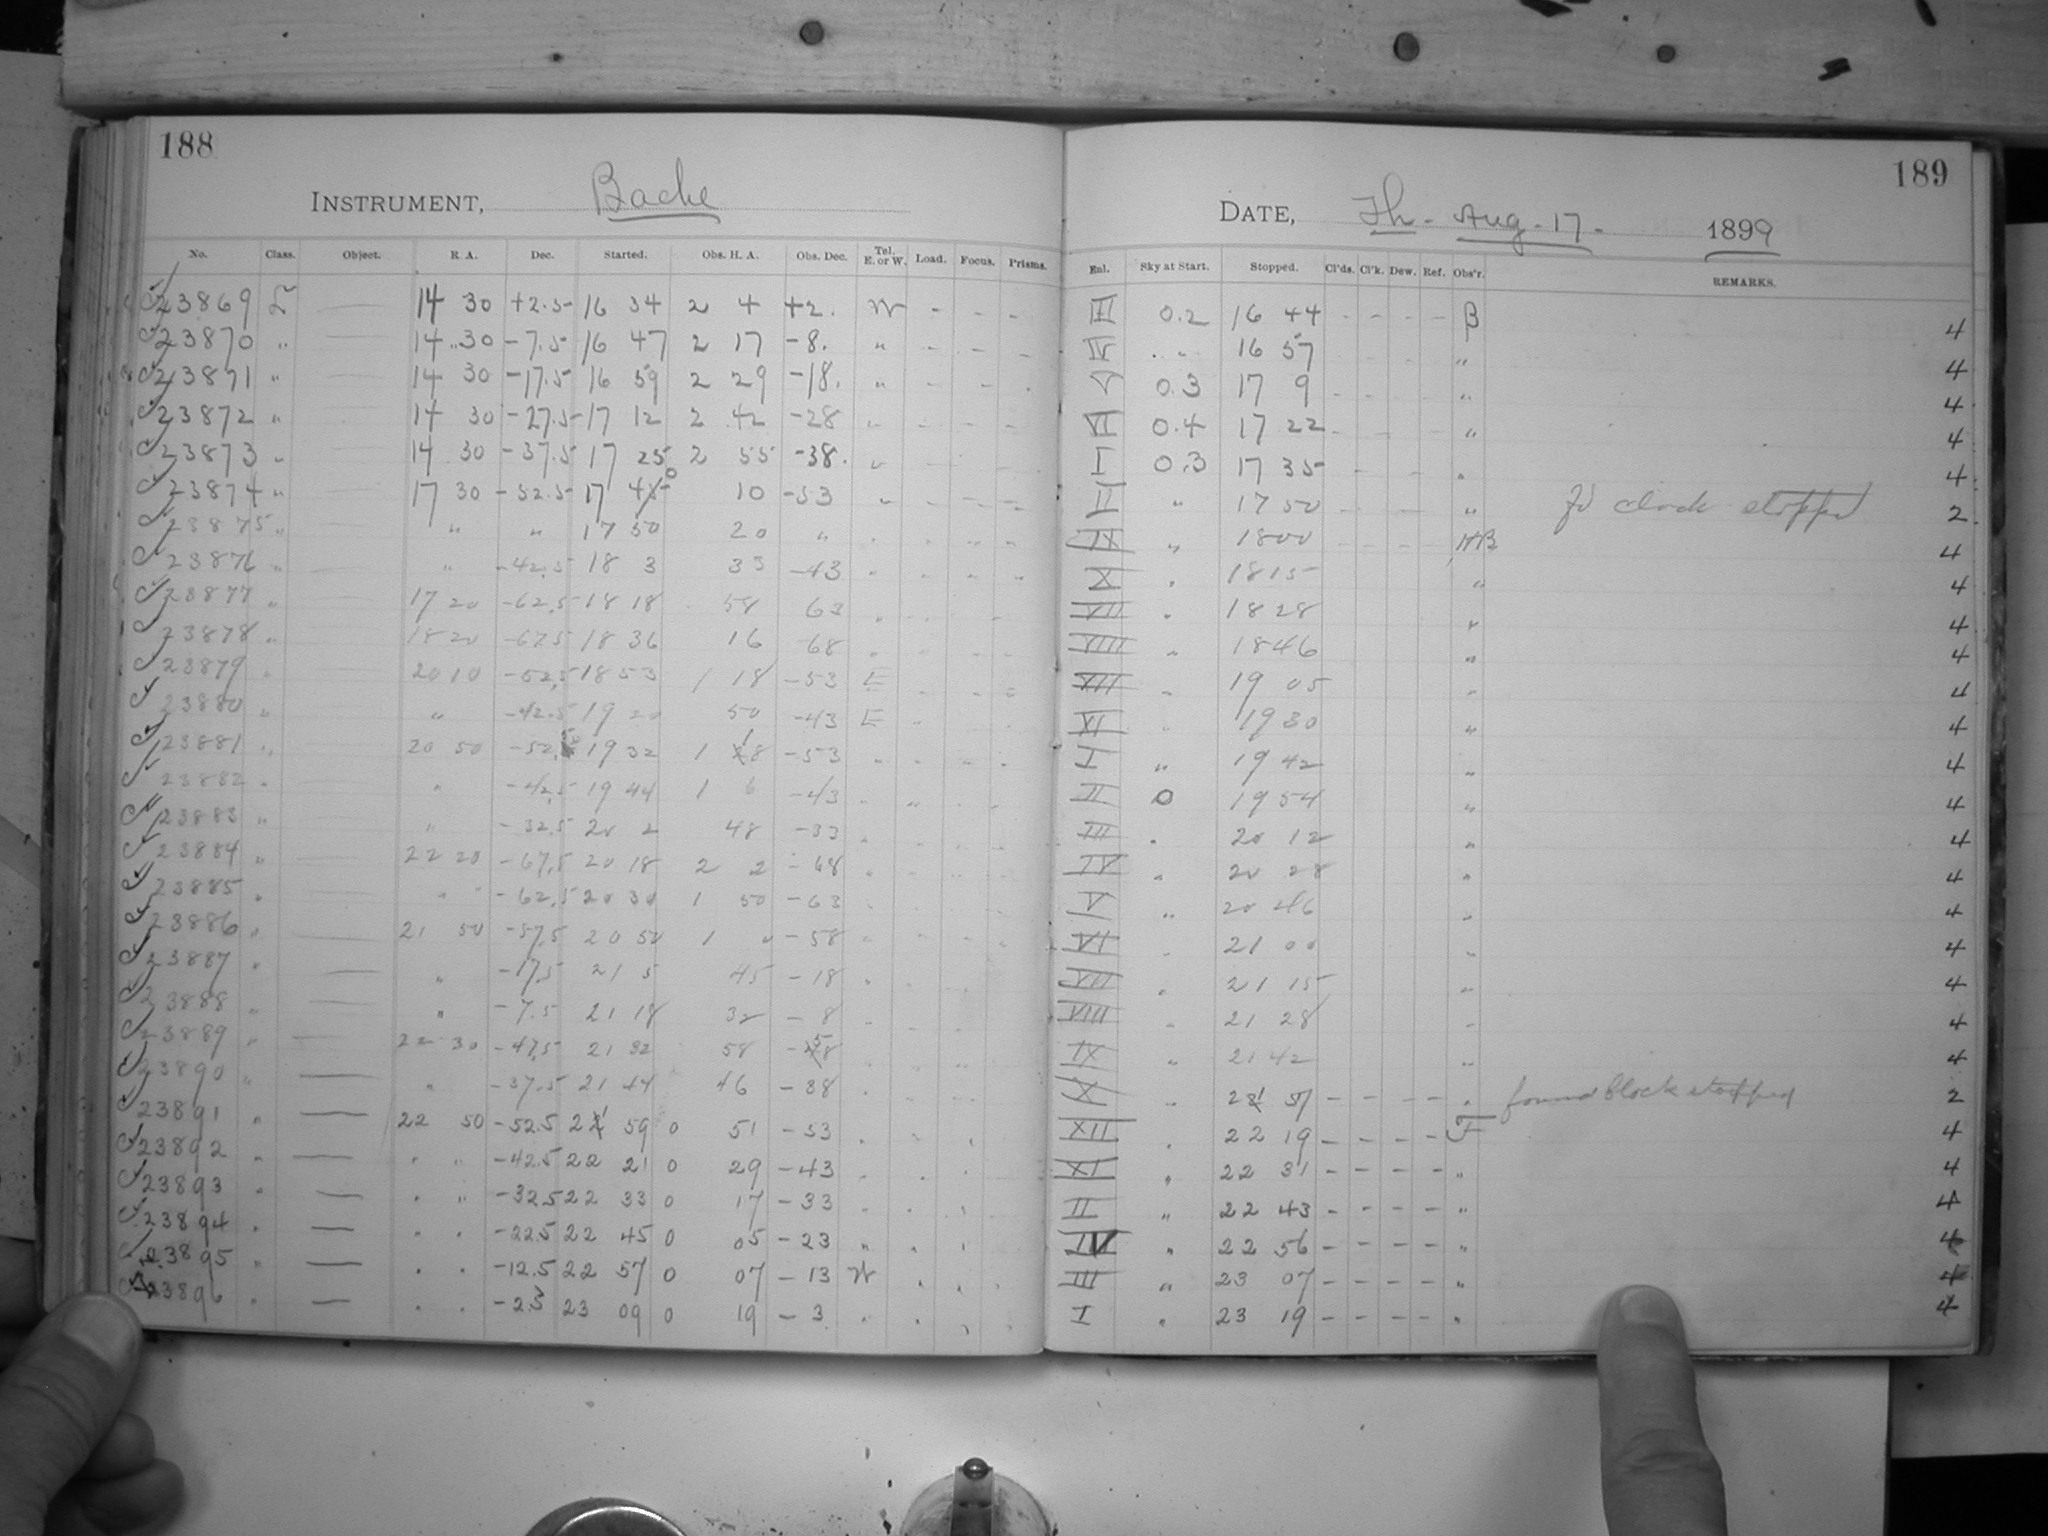 188
INSTRUMENT, Bache
No. Class. Object. R. A. Dec. Started. Obs. H. A. Obs. Dec. Tel. E. or W. Load. Focus. Prisms.
23869 L — 14 30 +2.5 16 34 2 4 +2. W - - -
23870 " — 14 30 -7.5 16 47 2 17 -8. " - - -
23871 " — 14 30 -17.5 16 59 2 29 -18. " - - -
23872 " — 14 30 -27.5 17 12 2 42 -28 " - - -
23873 " — 14 30 -37.5 17 25 2 55 -38. "
23874 " — 17 30 -52.5 17 40 10 -53 " - - -
23875 " — " " 17 50 20 " " " " "
23876 " — " -42.5 18 3 33 -43 " " " "
23877 " — 17 20 -62.5 18 18 58 63 "
23878 " — 18 20 -67.5 18 36 16 -68 "
23879 " — 20 10 -52.5 18 53 1 18 -53 E
23880 " — " -42.5 19 20 50 -43 E "
23881 " — 20 50 -52.5 19 32 1 18 -53 "
23882 " — " -42.5 19 44 1 6 -43 " "
23883 " — " -32.5 20 2 48 -33 "
23884 " — 22 20 -67.5 20 18 2 2 -68 "
23885 " — " -62.5 20 30 1 50 -63 "
23886 " — 21 50 -57.5 20 50 1 0 -58 "
23887 " — " -17.5 21 5 45 -18 "
23888 " — " -7.5 21 18 32 -8 "
23889 " — 22 30 -47.5 21 32 58 "
23890 " — " -37.5 21 44 46 -38 "
23891 " — 22 50 -52.5 21 59 0 51 -53 "
23892 " — " " -42.5 22 21 0 29 -43 "
23893 " — " " -32.5 22 33 0 17 -33 "
23894 " — " " -22.5 22 45 0 05 -23 " " "
23895 " — " " -12.5 22 57 0 07 -13 W " "
23896 " — " " -2.5 23 09 0 19 -3 " " "
189
DATE, Th. Aug. 17. 1899
Enl. Sky at Start. Stopped. Cl'ds. Cl'k. Dew. Ref. Obs'r. REMARKS.
III 0.2 16 44 - - - - β 4
IV " 16 57 " 4
V 0.3 17 9 - - - - " 4
VI 0.4 17 22 - - " 4
I 0.3 17 35 - - - " 4
II " 17 50 - - - " clock stopped 2
IX " 18 00 - - - - HB 4
X " 18 15 " 4
VII " 18 28 " 4
VIII " 18 46 " 4
XII " 19 05 " 4
XI " 19 30 " 4
I " 19 42 " 4
II 0 19 54 " 4
III " 20 12 " 4
IV " 20 28 " 4
V " 20 46 " 4
VI " 21 00 " 4
VII " 21 15 " 4
VIII " 21 28 " 4
IX " 21 42 " 4
X " 21 57 - - - - " found clock stopped 2
XII " 22 19 - - - - F 4
XI " 22 31 - - - - " 4
II " 22 43 - - - - " 4
IV " 22 56 - - - - " 4
III " 23 07 - - - - " 4
I " 23 19 - - - - " 4